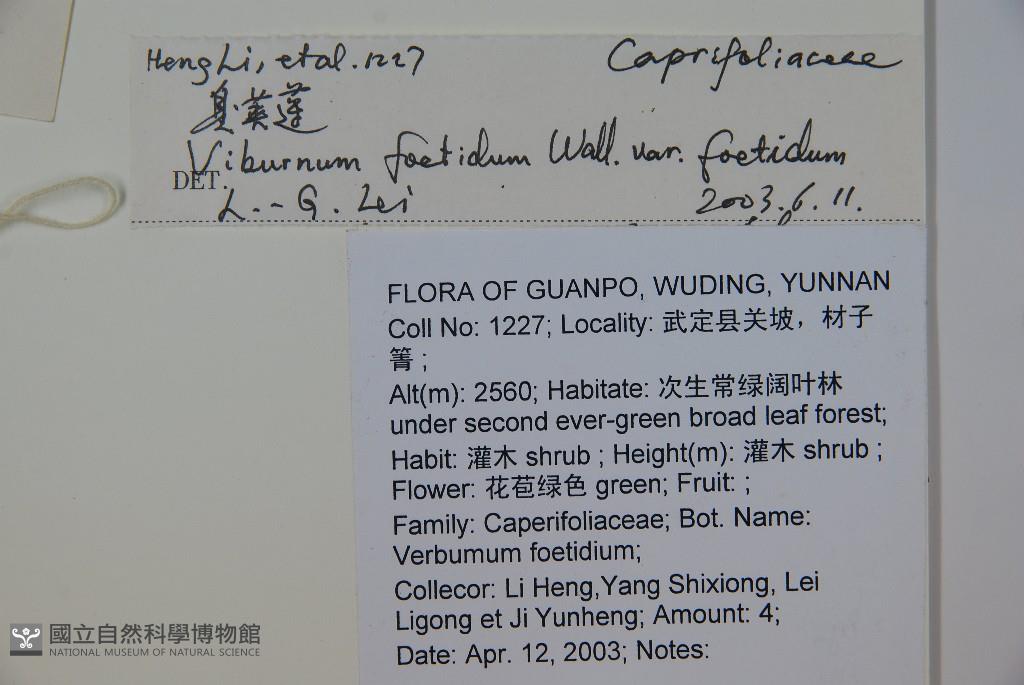 Heng Li, et al. 1227 Caprifoliaceae
臭荚蒾
Viburnum foetidum Wall. var. foetidum
DET. L.-G. Lei 2003.6.11.
FLORA OF GUANPO, WUDING, YUNNAN
Coll No: 1227; Locality: 武定县关坡，材子
箐 ;
Alt(m): 2560; Habitate: 次生常绿阔叶林
under second ever-green broad leaf forest;
Habit: 灌木 shrub ; Height(m): 灌木 shrub ;
Flower: 花苞绿色 green; Fruit: ;
Family: Caperifoliaceae; Bot. Name:
Verbumum foetidium;
Collecor: Li Heng,Yang Shixiong, Lei
Ligong et Ji Yunheng; Amount: 4;
Date: Apr. 12, 2003; Notes:
國立自然科學博物館
NATIONAL MUSEUM OF NATURAL SCIENCE